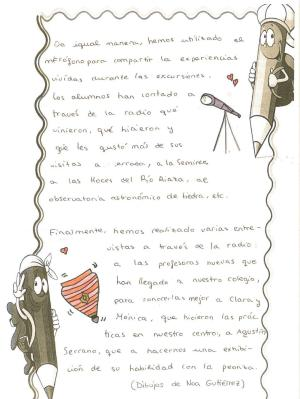 De igual manera, hemos utilizado el
micrófono para compartir la experiencias
vividas durante las excursiones.
Los alumnos han contado a
través de la radio qué
vinieron, qué hicieron y
qué les gustó más de sus
visitas a a la
a las Hoces del Río Riaza, al
observatorio astronómico de Tiedra, etc.
Finalmente, hemos realizado varias entre-
vistas a través de la radio:
a las profesoras nuevas que
han llegado a nuestro colegio,
para conocerlas mejor a Clara y
Mónica, que hicieron las prác
ticas en nuestro centro, a Agustín
Serrano, que a hacernos una exhibi-
ción de su habilidad con la peonza.
(Dibujos de Noa Gutiérrez)